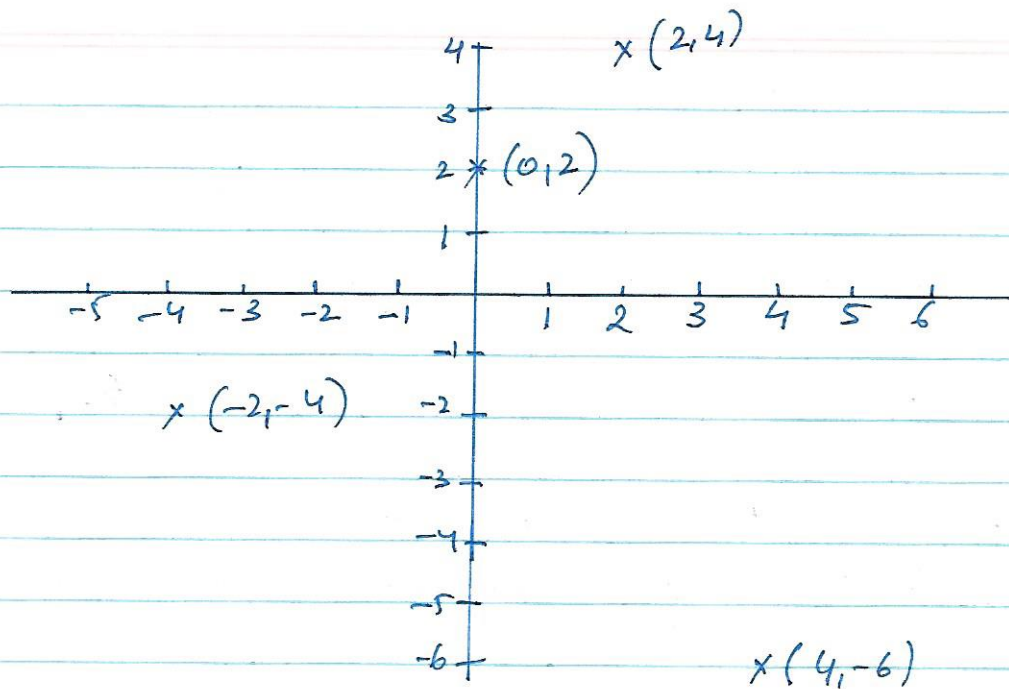 4 × (2,4)
3
2 × (0,2)
1
-5 -4 -3 -2 -1 1 2 3 4 5 6
-1
× (-2,-4) -2
-3
-4
-5
-6 × (4,-6)